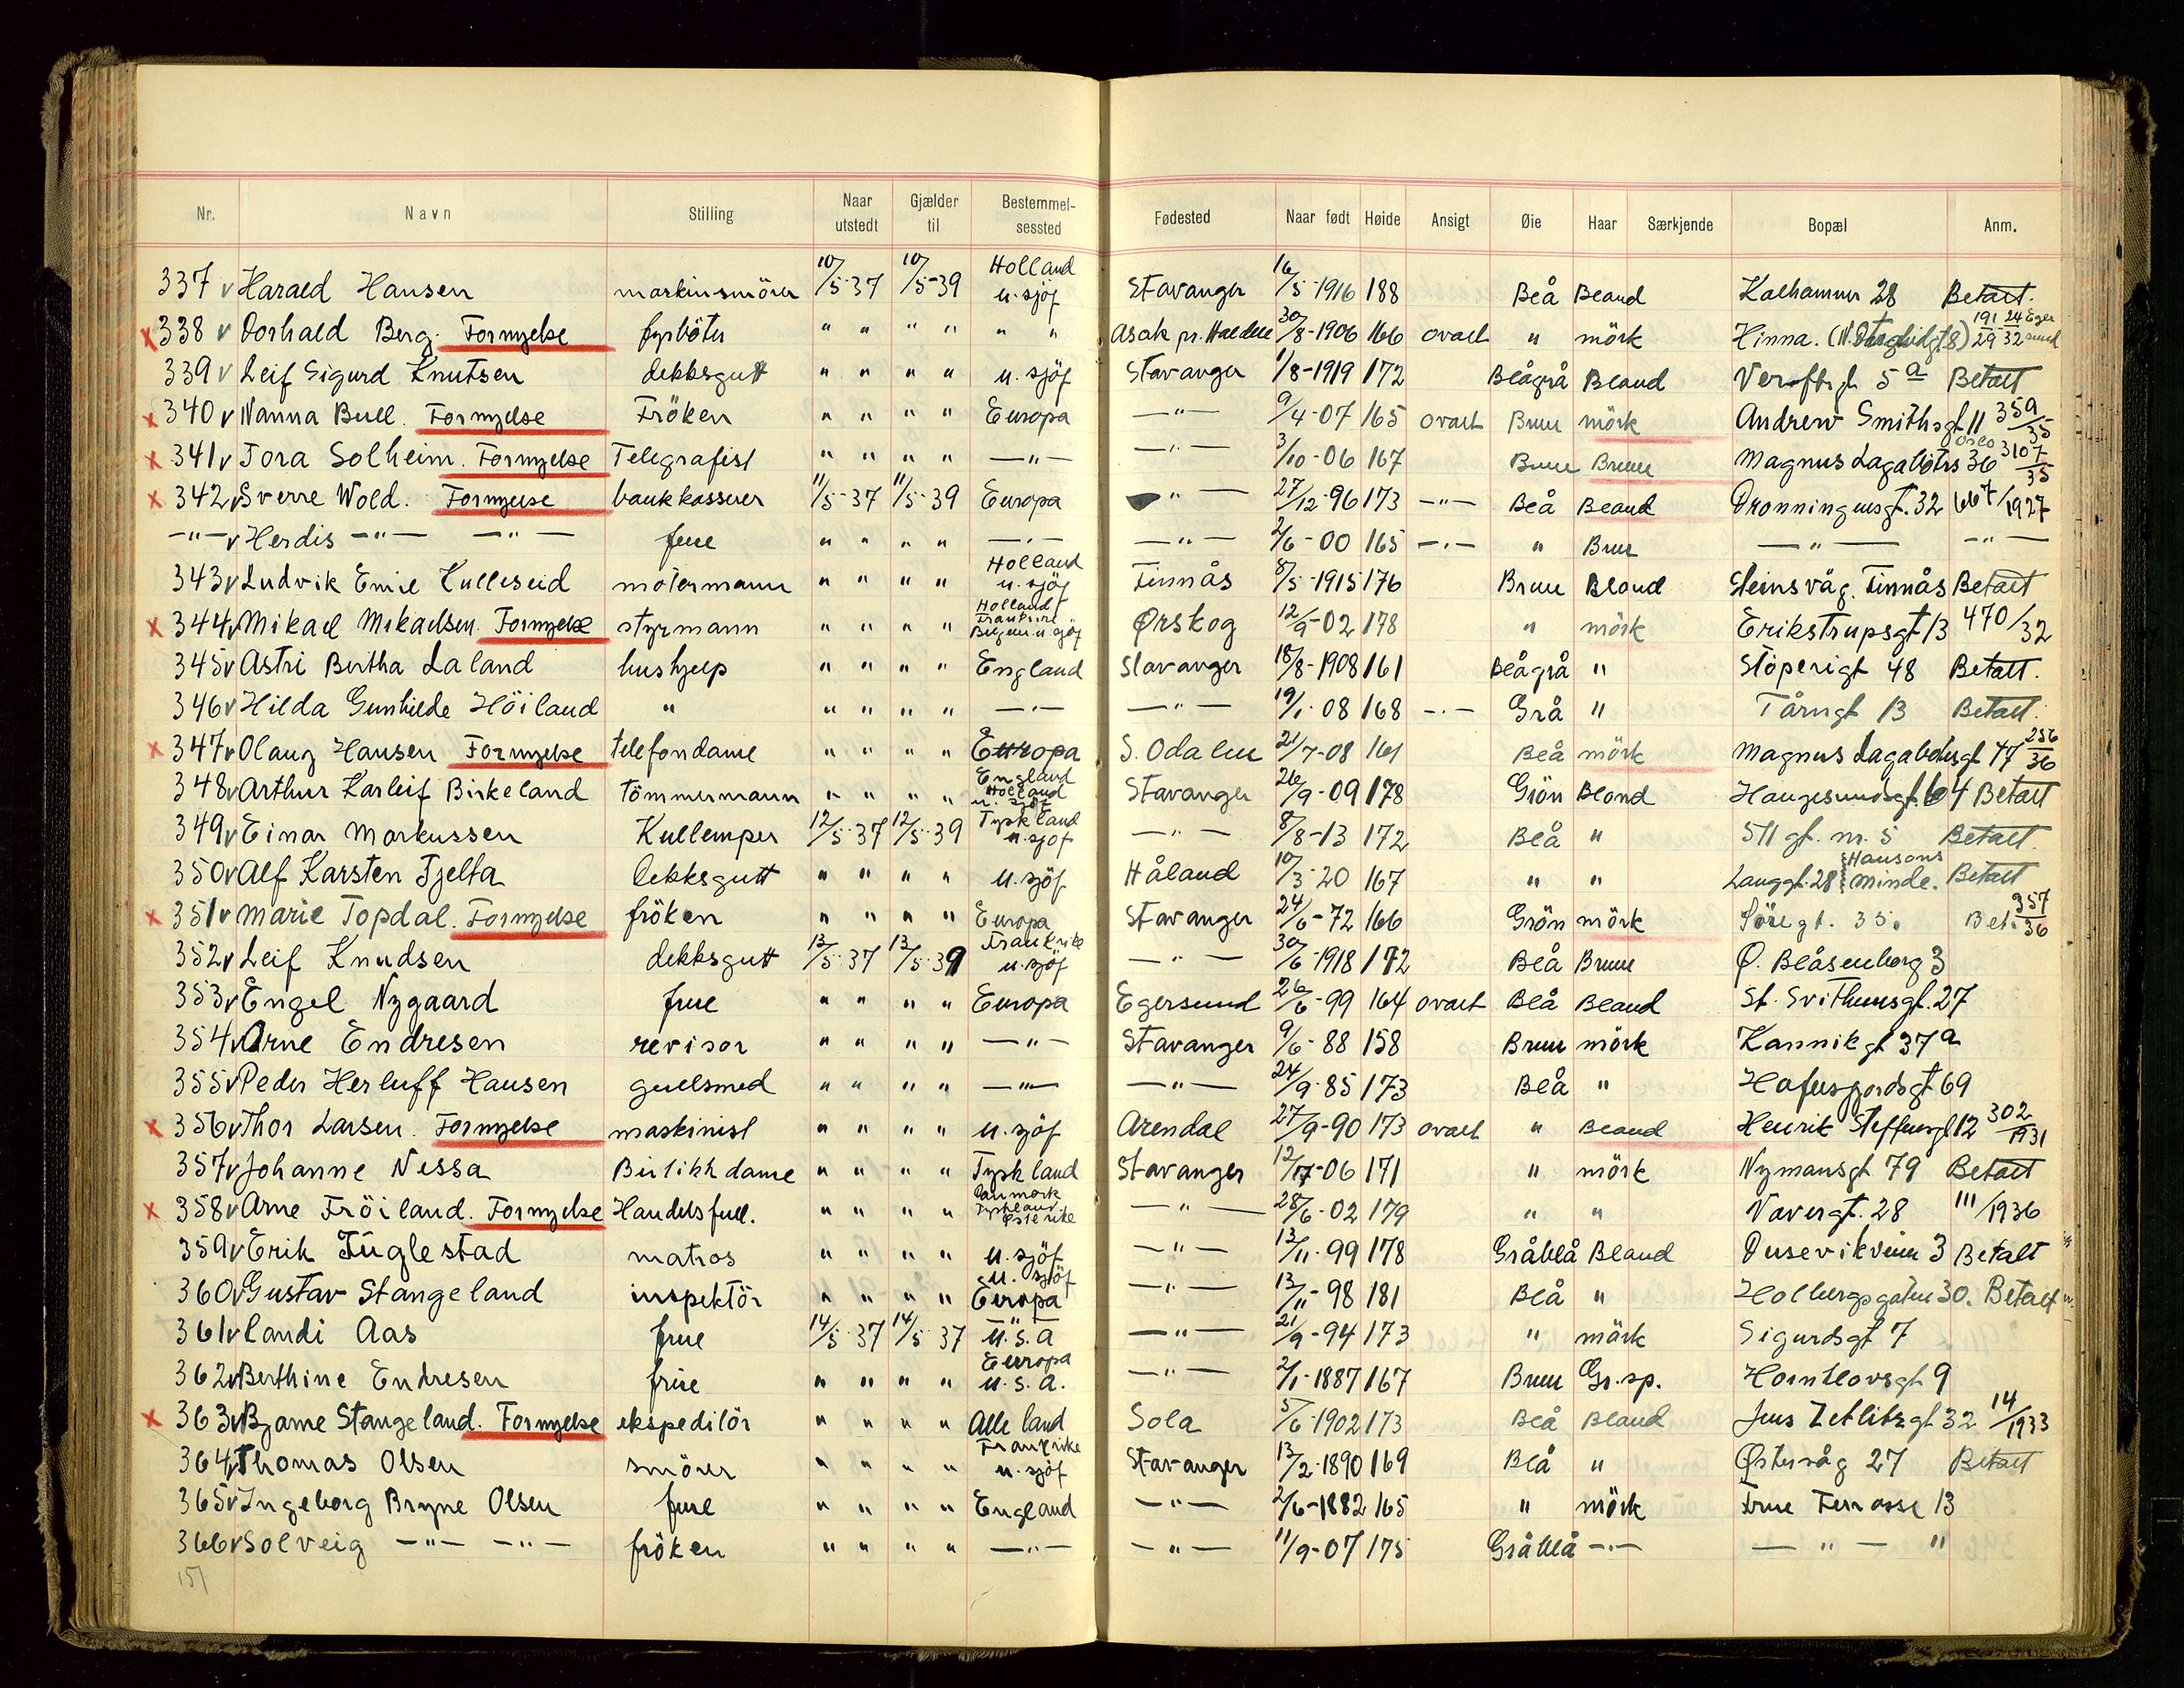 Nr. Navn Stilling Naar utstedt Gjælder til Bestemmel-sessted Fødested Naar født Høide Ansigt Øie Haar Særkjende Bopæl Anm.
337 v Harald Hansen maskinsmörer 10/5-37 10/5-39 Holland u. sjöf Stavanger 16/5-1916 188 Blå Bland Kalhammer 28 Betalt.
x 338 v Dorhald Berg. Fornyelse fyrböter " " " " " " Asak pr. Halden 30/8-1906 166 ovalt " mörk Hinna. 191/29 24/32 Egersund
339 v Leif Sigurd Knutsen dekksgutt " " " " u. sjöf Stavanger 1/8-1919 172 Blågrå Bland 5 a Betalt
x 340 v Nanna Bull. Fornyelse Fröken " " " " Europa —"— 9/4-07 165 ovalt Brun mörk Andrew Smithsgt 11 359/35
x 341 v Tora Solheim. Fornyelse Telegrafist " " " " —"— —"— 3/10-06 167 Brun Brun Magnus Lagabötrs 36 Oslo 3107/35
x 342 v Sverre Wold. Fornyelse bankkasserer 11/5-37 11/5-39 Europa " — 27/12-96 173 —"— Blå Bland Dronningensgt. 32 667/1927
—"— v Herdis —"— —"— frue " " " " —"— —"— 2/6-00 165 —"— " Brun —"— —"—
343 v Ludvik Emil Kulleseid motormann " " " " Holland u. sjöf Finnås 8/5-1915 176 Brun Blond Steinsvåg. Finnås Betalt
x 344 v Mikael Mikaelsen Fornyelse styrmann " " " " Holland Frankrike Belgien u sjöf Ørskog 12/9-02 178 " mörk Erikstrupsgt 13 470/32
345 v Astri Bertha Laland hushjelp " " " " England Stavanger 18/8-1908 161 Blågrå " Stöperigt 48 Betalt.
346 v Hilda Gunhilde Höiland " " " " " —"— —"— 19/1-08 168 —"— Grå " Tårngt 13 Betalt.
x 347 v Olaug Hansen Fornyelse telefondame " " " " Europa S. Odalen 21/7-08 161 Blå mörk Magnus Lagabötersgt 47 256/36
348 v Arthur Karleif Birkeland Tömmermann " " " " England Holland u. sjöf Stavanger 26/9-09 178 Grön Blond Haugesundsgt. 64 Betalt
349 v Einar Markussen Kullemper 12/5-37 12/5-39 Tyskland u. sjöf —"— 8/8-13 172 Blå " gt. nr. 5 Betalt.
350 v Alf Karsten Tjelta dekksgutt " " " " u. sjöf Håland 10/3-20 167 " " Langgt. 28 Hansons Minde. Betalt
x 351 v Marie Topdal. Fornyelse fröken " " " " Europa Stavanger 24/6-72 166 Grön mörk Söregt. 35. Bet. 357/36
352 v Leif Knudsen dekksgutt 13/5-37 13/5-39 Frankrike u. sjöf —"— 30/6-1918 172 Blå Brun Ø. Blåsenborg 3
353 v Engel Nygaard frue " " " " Europa Egersund 26/6-99 164 ovalt Blå Bland St. Svithunsgt. 27
354 v Arne Endresen revisor " " " " —"— Stavanger 9/6-88 158 Brun mörk Kannikgt 37 a
355 v Peder Herluff Hansen gullsmed " " " " —"— —"— 24/9-85 173 Blå " Hafrsfjordsgt 69
x 356 v Thor Larsen. Fornyelse maskinist " " " " u. sjöf Arendal 27/9-90 173 ovalt " Bland Henrik Steffensgt 12 302/1931
357 v Johanne Nessa Butikkdame " " " " Tyskland Stavanger 12/7-06 171 " mörk Nymansgt 79 Betalt
x 358 v Arne Fröiland. Fornyelse Handelsfull. " " " " Danmark Tyskland Österike —"— 28/6-02 179 " " Navergt. 28 111/1936
359 v Erik Füglestad matros " " " " u. sjöf —"— 13/11-99 178 Gråblå Bland Dusevikveien 3 Betalt
360 v Gustav Stangeland inspektör " " " " u. sjöf Europa —"— 13/11-98 181 Blå " Holbergsgaten 30. Betalt
361 v Randi Aas frue 14/5-37 14/5-37 U.S.A —"— 21/9-94 173 " mörk Sigurdsgt 7
362 v Berthine Endresen frue " " " " Europa U.S.A. —"— 2/1-1887 167 Brun Gr.sp. Hornklovsgt 9
x 363 v Bjarne Stangeland. Fornyelse ekspeditör " " " " Alle land Sola 5/6-1902 173 Blå Bland Jens Zetlitzgt 32 14/1933
364 v Thomas Olsen smörer " " " " Frankrike u. sjöf Stavanger 13/2-1890 169 Blå " Østervåg 27 Betalt
365 v Ingeborg Bryne Olsen frue " " " " England —"— 2/6-1882 165 " mörk Terrasse 13
366 v Solveig —"— —"— fröken " " " " —"— —"— 11/9-07 175 Gråblå —"— —"— "
151